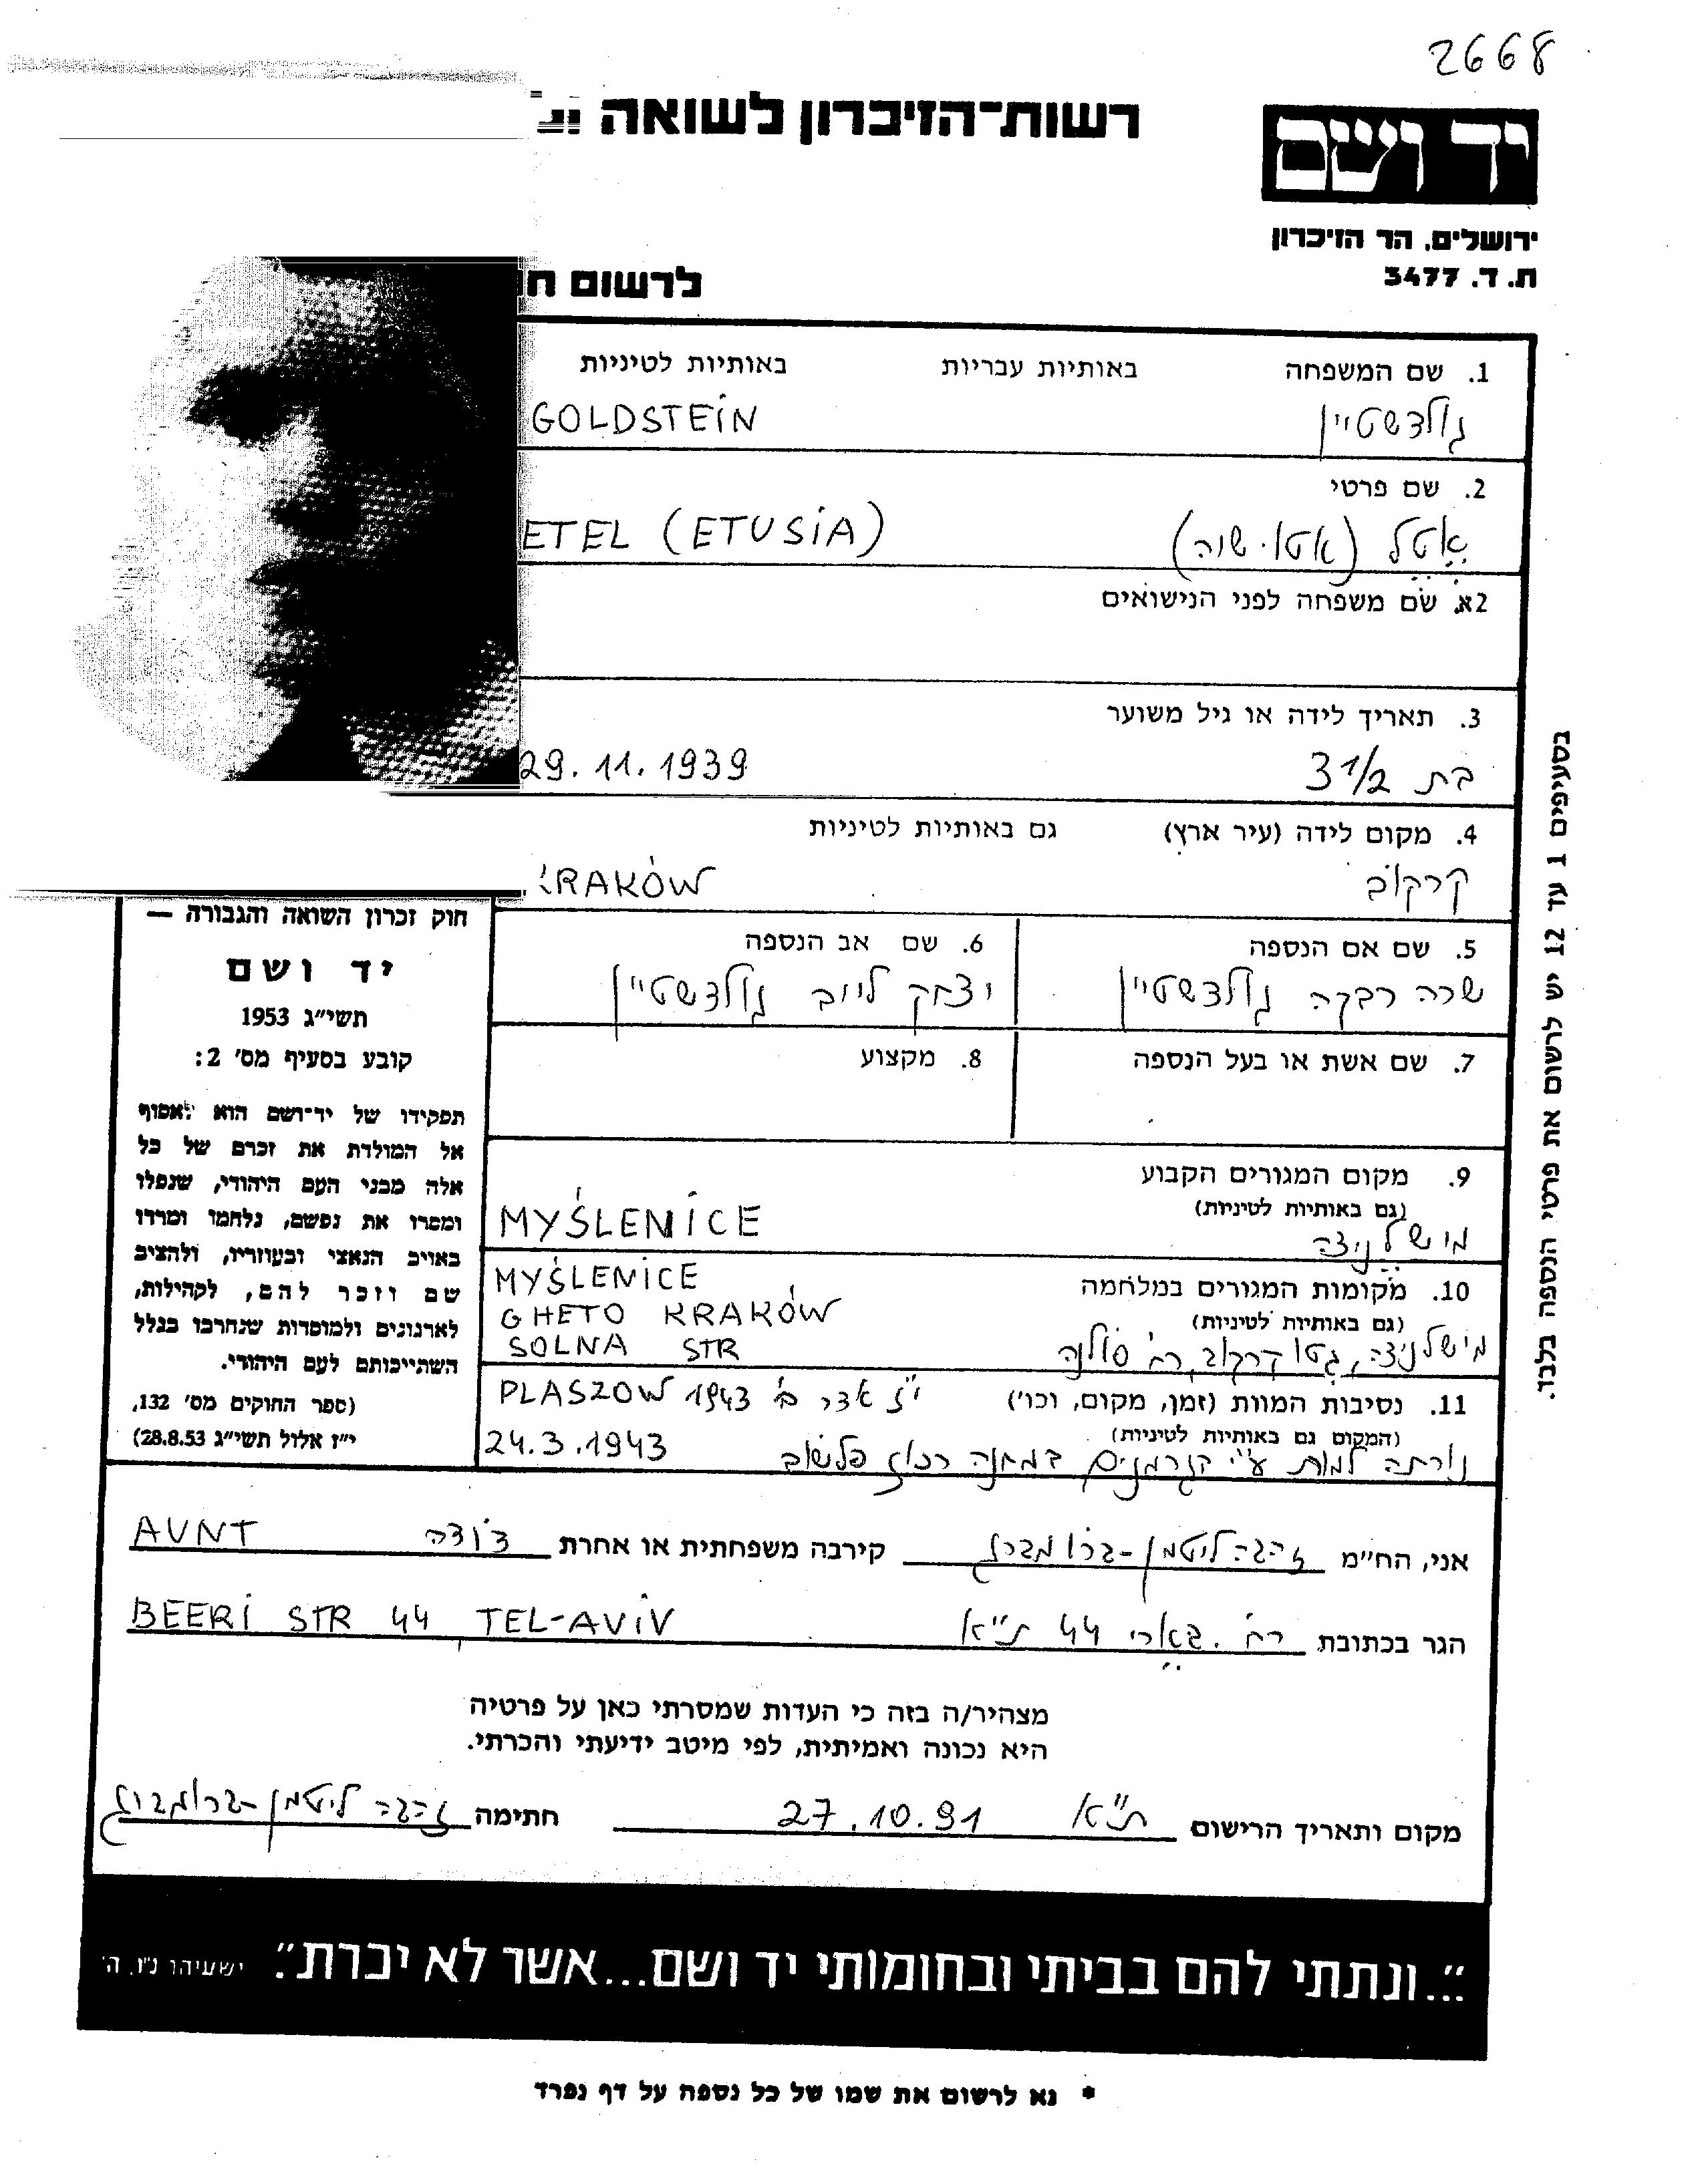 2668
רשות־הזיכרון לשואה
יד ושם
ירושלים, הר הזיכרון
ת. ד. 3477
לרשום
1. שם המשפחה באותיות עבריות באותיות לטיניות
גולדשטיין GOLDSTEIN
2. שם פרטי
אטל (אטו·שיה) ETEL (ETUSIA)
2א. שם משפחה לפני הנישואים
3. תאריך לידה או גיל משוער
בת 3 1/2 29.11.1939
4. מקום לידה (עיר ארץ) גם באותיות לטיניות
קרקוב KRAKÓW
5. שם אם הנספה 6. שם אב הנספה
שרה רבקה גולדשטיין יצחק לייב גולדשטיין
7. שם אשת או בעל הנספה 8. מקצוע
9. מקום המגורים הקבוע
(גם באותיות לטיניות)
מישלניצה MYŚLENICE
10. מקומות המגורים במלחמה
(גם באותיות לטיניות)
MYŚLENICE
GHETO KRAKÓW
SOLNA STR
מישלניצה, גטו קרקוב, רח' סולנה
11. נסיבות המוות (זמן, מקום, וכו')
(המקום גם באותיות לטיניות)
PLASZOW 1943 י"ז אדר ב'
24.3.1943
נורתה למות ע"י הגרמנים במחנה רכוז פלשוב
חוק זכרון השואה והגבורה —
יד ושם
תשי״ג 1953
קובע בסעיף מס׳ 2:
תפקידו של יד־ושם הוא לאסוף
אל המולדת את זכרם של כל
אלה מבני העם היהודי, שנפלו
ומסרו את נפשם, נלחמו ומרדו
באויב הנאצי ובעוזריו, ולהציב
שם וזכר להם, לקהילות,
לארגונים ולמוסדות שנחרבו בגלל
השתייכותם לעם היהודי.
(ספר החוקים מס׳ 132,
י״ז אלול תשי״ג 28.8.53)
בסעיפים 1 עד 12 יש לרשום את פרטי הנספה בלבד.
אני, הח״מ זהבה ליטמן-ברומברג קירבה משפחתית או אחרת דודה AUNT
הגר בכתובת רח' בארי 44 ת"א BEERI STR 44 TEL-AVIV
מצהיר/ה בזה כי העדות שמסרתי כאן על פרטיה
היא נכונה ואמיתית, לפי מיטב ידיעתי והכרתי.
מקום ותאריך הרישום ת"א 27.10.91 חתימה זהבה ליטמן-ברומברג
״...ונתתי להם בביתי ובחומותי יד ושם...אשר לא יכרת״. ישעיהו נ״ו, ה׳
* נא לרשום את שמו של כל נספה על דף נפרד